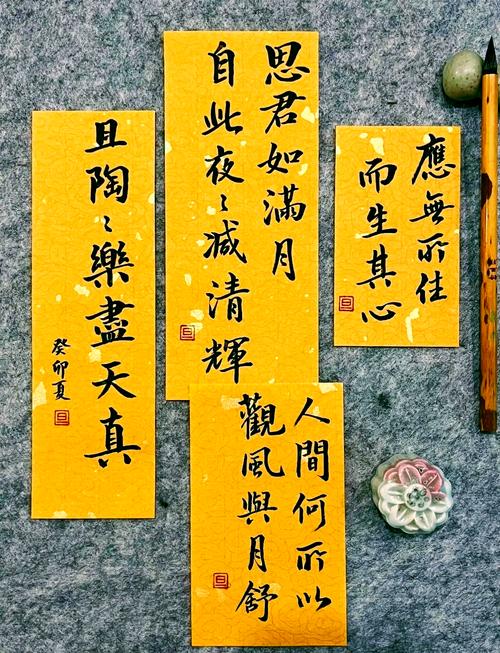 應無所住
而生其心
旦
思君如滿月
自此夜〻減清輝
旦
人間何所以
觀風與月舒
旦
且陶〻樂盡天真
癸卯夏
旦